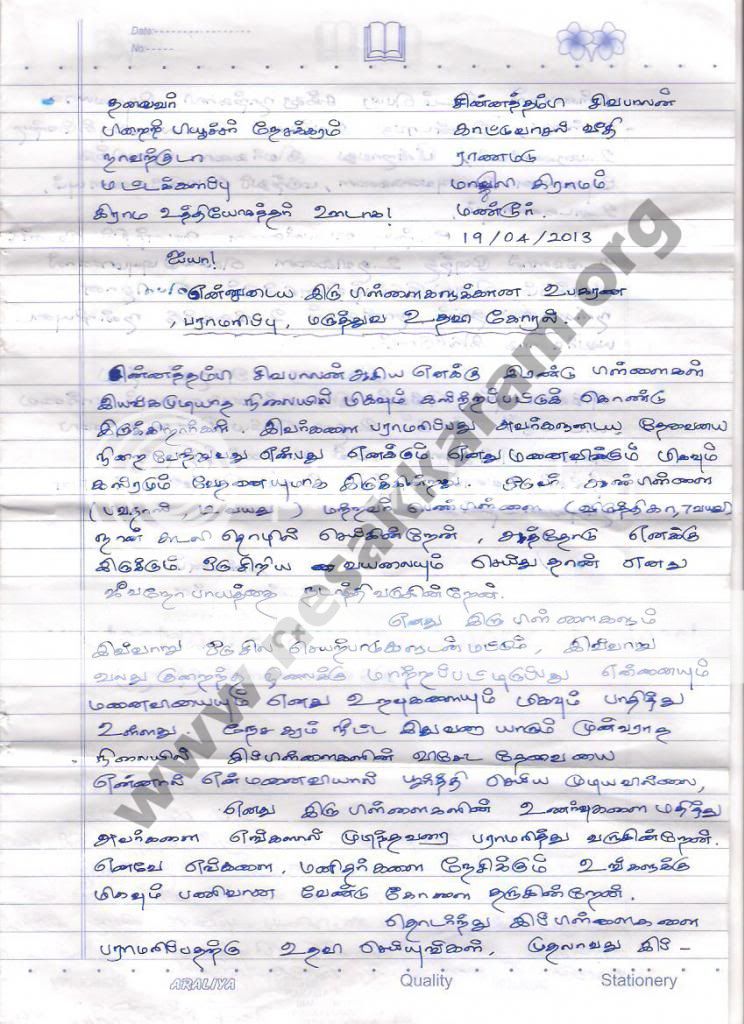 Date:
No:
தலைவர்
பிறைற் பியூச்சர் நேசக்கரம்
நாவற்குடா
மட்டக்களப்பு
கிராம உத்தியோகத்தர் ஊடாக!
சின்னத்தம்பி சிவபாலன்
காட்டுவாசல் வீதி
ராணமடு
மாலையர் கிராமம்
மண்டூர்.
19/04/2013
ஐயா!
என்னுடைய இரு பிள்ளைகளுக்கான உபகரண
, பராமரிப்பு, மருத்துவ உதவி கோரல்.
சின்னத்தம்பி சிவபாலன் ஆகிய எனக்கு இரண்டு பிள்ளைகள்
இயங்கமுடியாத நிலையில் மிகவும் கஸ்ரப்பட்டுக் கொண்டு
இருக்கிறார்கள். இவர்களை பராமரிப்பது அவர்களுடைய தேவையை
நிறைவேற்றுவது என்பது எனக்கும் எனது மனைவிக்கும் மிகவும்
கஸ்ரமும் வேதனையுமாக இருக்கின்றது. ஒருவர் ஆண்பிள்ளை
வயது) மற்றவர் பெண்பிள்ளை 7வயது)
நான் கூலி தொழில் செய்கின்றேன், அத்தோடு எனக்கு
இருக்கும் ஒரு சிறிய வயலையும் செய்து தான் எனது
ஜீவனோபாயத்தை நடாத்தி வருகின்றேன்.
எனது இரு பிள்ளைகளும்
இவ்வாறு ஒரு சில செயற்பாடுகளுடன் மட்டும், இவ்வாறு
வலது குறைந்த நிலைக்கு மாற்றப்பட்டிருப்பது என்னையும்
மனைவியையும் எனது உறவுகளையும் மிகவும் பாதித்து
உள்ளது. நேசகரம் நீட்ட இதுவரை யாரும் முன்வராத
நிலையில் இப்பிள்ளைகளின் விசேட தேவையை
என்னால் என் மனைவியால் பூர்த்தி செய்ய முடியவில்லை,
எனது இரு பிள்ளைகளின் உணர்வுகளை மதித்து
அவர்களை எங்களால் முடிந்தவரை பராமரித்து வருகின்றேன்.
எனவே எங்களை, மனிதர்களை நேசிக்கும் உங்களுக்கு
மிகவும் பணிவான வேண்டுகோளை தருகின்றேன்.
தொடர்ந்து இப்பிள்ளைகளை
பராமரிப்பதற்கு உதவி செய்யுங்கள், முதலாவது இப் -
ARALIYA Quality Stationery
www.nesakkaram.org